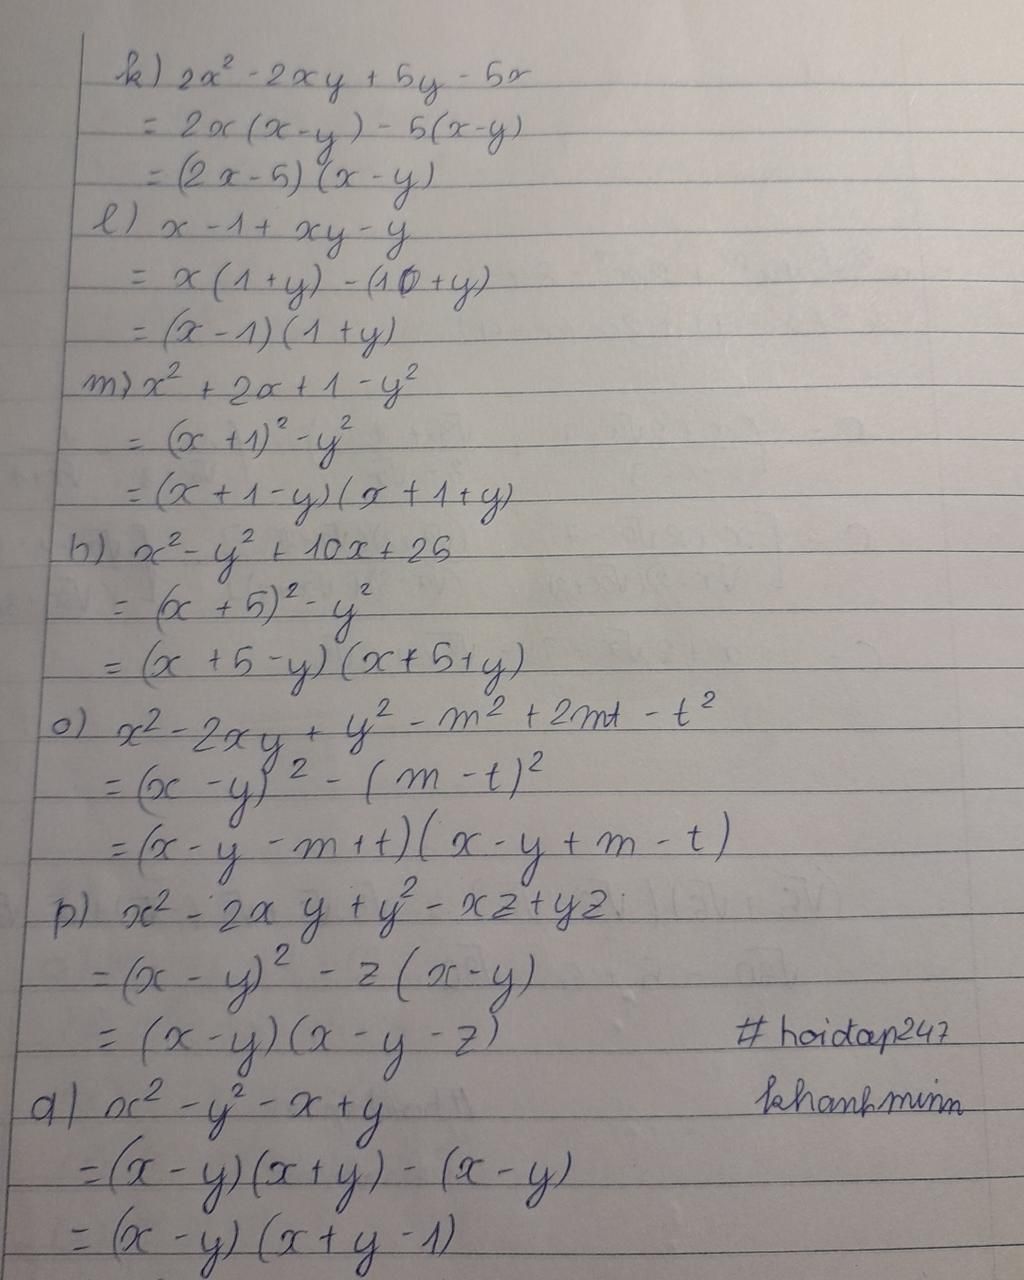 k) 2x² - 2xy + 5y - 5x
= 2x(x-y) - 5(x-y)
= (2x-5)(x-y)
l) x - 1 + xy - y
= x(1+y) - (10+y)
= (x-1)(1+y)
m) x² + 2x + 1 - y²
= (x+1)² - y²
= (x+1-y)(x+1+y)
h) x² - y² + 10x + 25
= (x+5)² - y²
= (x+5-y)(x+5+y)
o) x² - 2xy + y² - m² + 2mt - t²
= (x-y)² - (m-t)²
= (x-y-m+t)(x-y+m-t)
p) x² - 2xy + y² - xz + yz
= (x-y)² - z(x-y)
= (x-y)(x-y-z)
#hoidap247
q) x² - y² - x + y
khanhminn
= (x-y)(x+y) - (x-y)
= (x-y)(x+y-1)